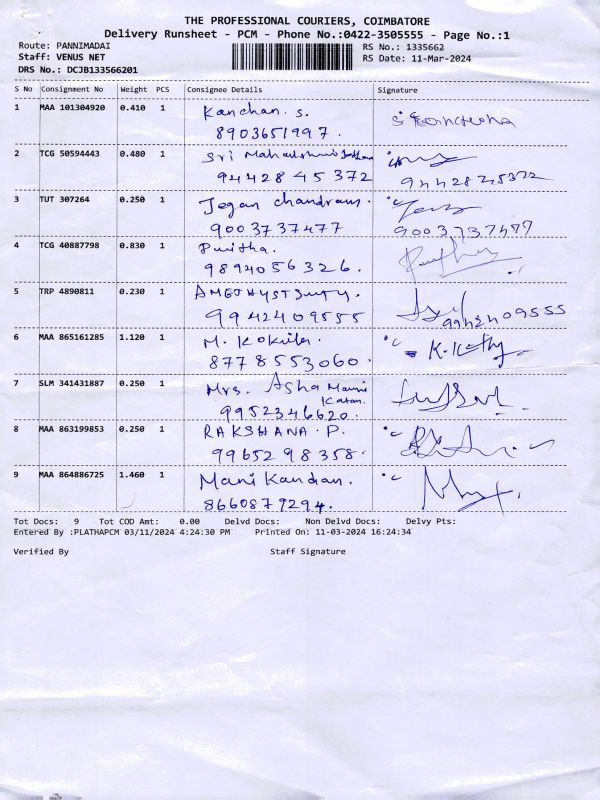 THE PROFESSIONAL COURIERS, COIMBATORE
Delivery Runsheet - PCM - Phone No.:0422-3505555 - Page No.:1
Route: PANNIMADAI
RS No.: 1335662
Staff: VENUS NET
RS Date: 11-Mar-2024
DRS No.: DCJB133566201
S No Consignment No Weight PCS Consignee Details Signature
1 MAA 101304920 0.410 1 Kanchan. S.
8903651997.
2 TCG 50594443 0.480 1 Sri
9442845372 9442845372
3 TUT 307264 0.250 1 Jegan chandran.
9003737477 9003737477
4 TCG 40887798 0.830 1 Punitha.
9894056326.
5 TRP 4890811 0.230 1 AMETHYST
9942409555 9942409555
6 MAA 865161285 1.120 1 M. Kokila. K.
8778553060.
7 SLM 341431887 0.250 1 Mrs. Asha Mani
9952346620.
8 MAA 863199853 0.250 1 RAKSHANA. P.
9965298358.
9 MAA 864886725 1.460 1 Mani Kandan.
8660879294.
Tot Docs: 9 Tot COD Amt: 0.00 Delvd Docs: Non Delvd Docs: Delvy Pts:
Entered By :PLATHAPCM 03/11/2024 4:24:30 PM Printed On: 11-03-2024 16:24:34
Verified By Staff Signature